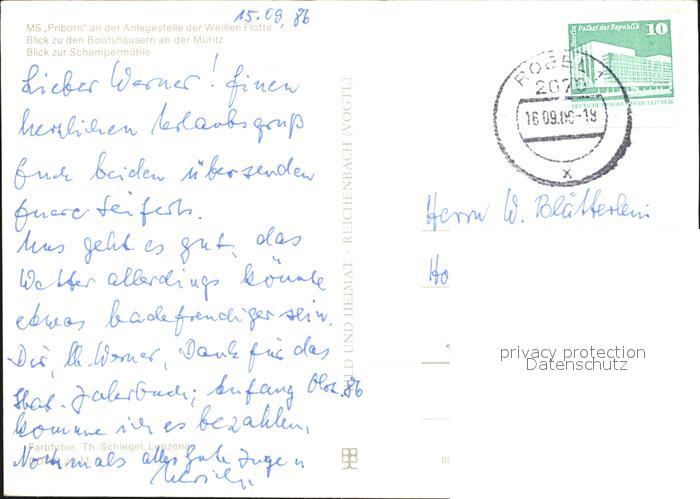 15.09.86
MS „Priborn" an der Anlegestelle der Weißen Flotte
Blick zu den Bootshäusern an der Müritz
Blick zur Schampermühle
Lieber Werner! Einen
herzlichen Urlaubsgruß
Euch beiden übersenden
Euere Seiferts.
Uns geht es gut, das
Wetter allerdings könnte
etwas badefreudiger sein.
Dir, lb. Werner, Dank für das
Stat. Jahrbuch; Anfang Okt. 86
komme ich es bezahlen.
Nochmals alles Gute Eugen
Farbfotos: Th. Schlegel, Lunzenau
BILD UND HEIMAT · REICHENBACH (VOGTL)
RÖBEL
2070
16.09.86-19
x
Berlin, Palast der Republik
10
DEUTSCHE DEMOKRATISCHE REPUBLIK
Herrn W. Blätterlein
Ho
privacy protection
Datenschutz